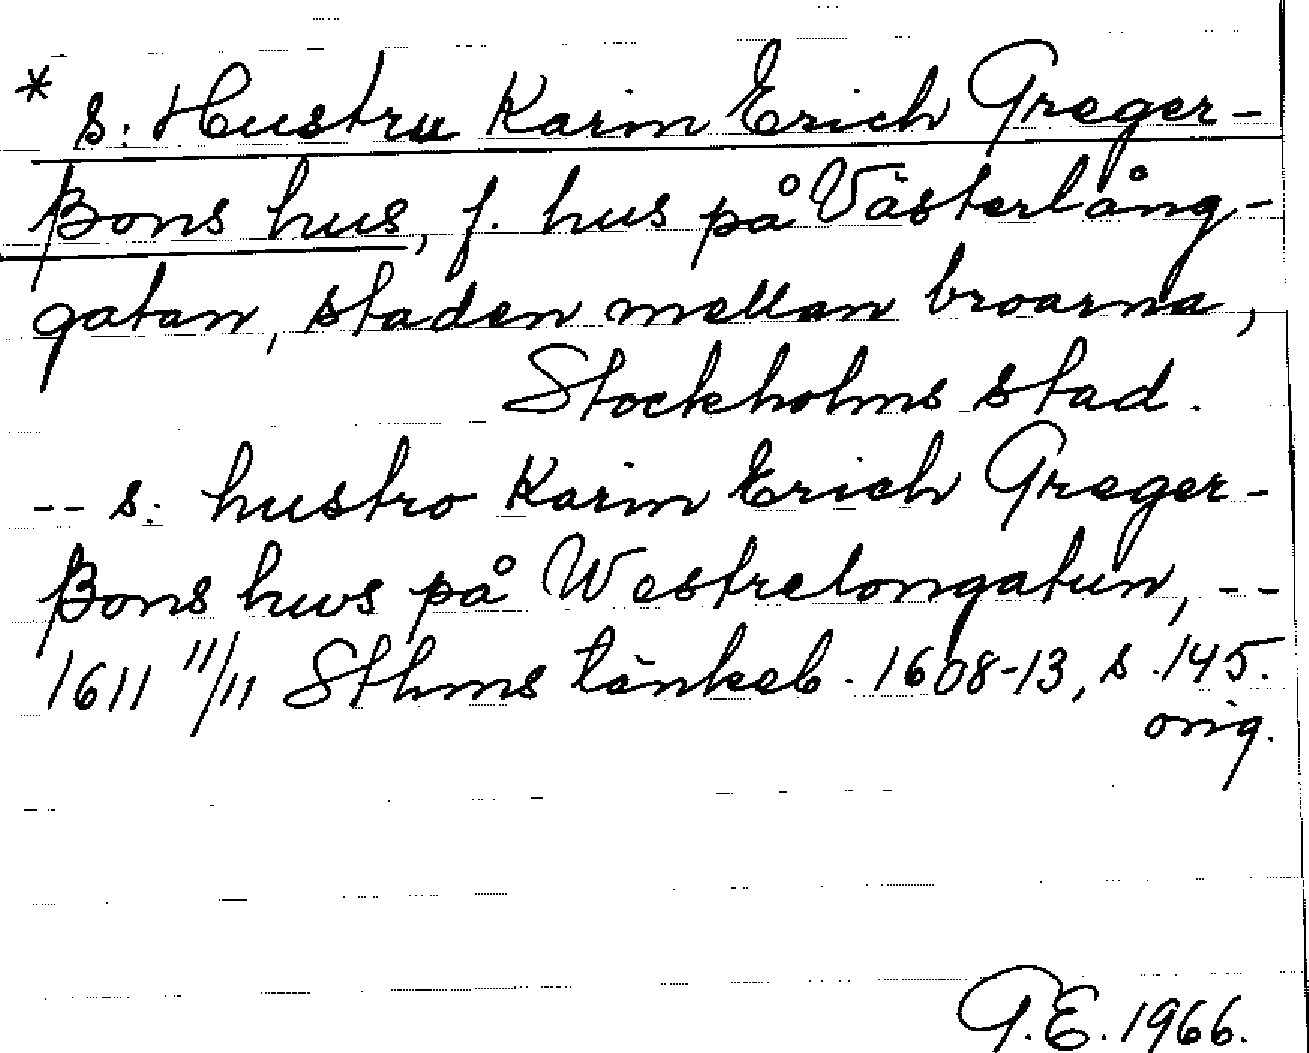 * s. Hustru Karin Erich Greger-
ßons hus, f. hus på Västerlång-
gatan, staden mellan broarna,
Stockholms stad.
-- s. hustro Karin Erich Greger-
ßons hws på Westrelongatun, --
1611 11/11 Sthms tänkeb. 1608-13, s. 145.
orig.
G.E. 1966.